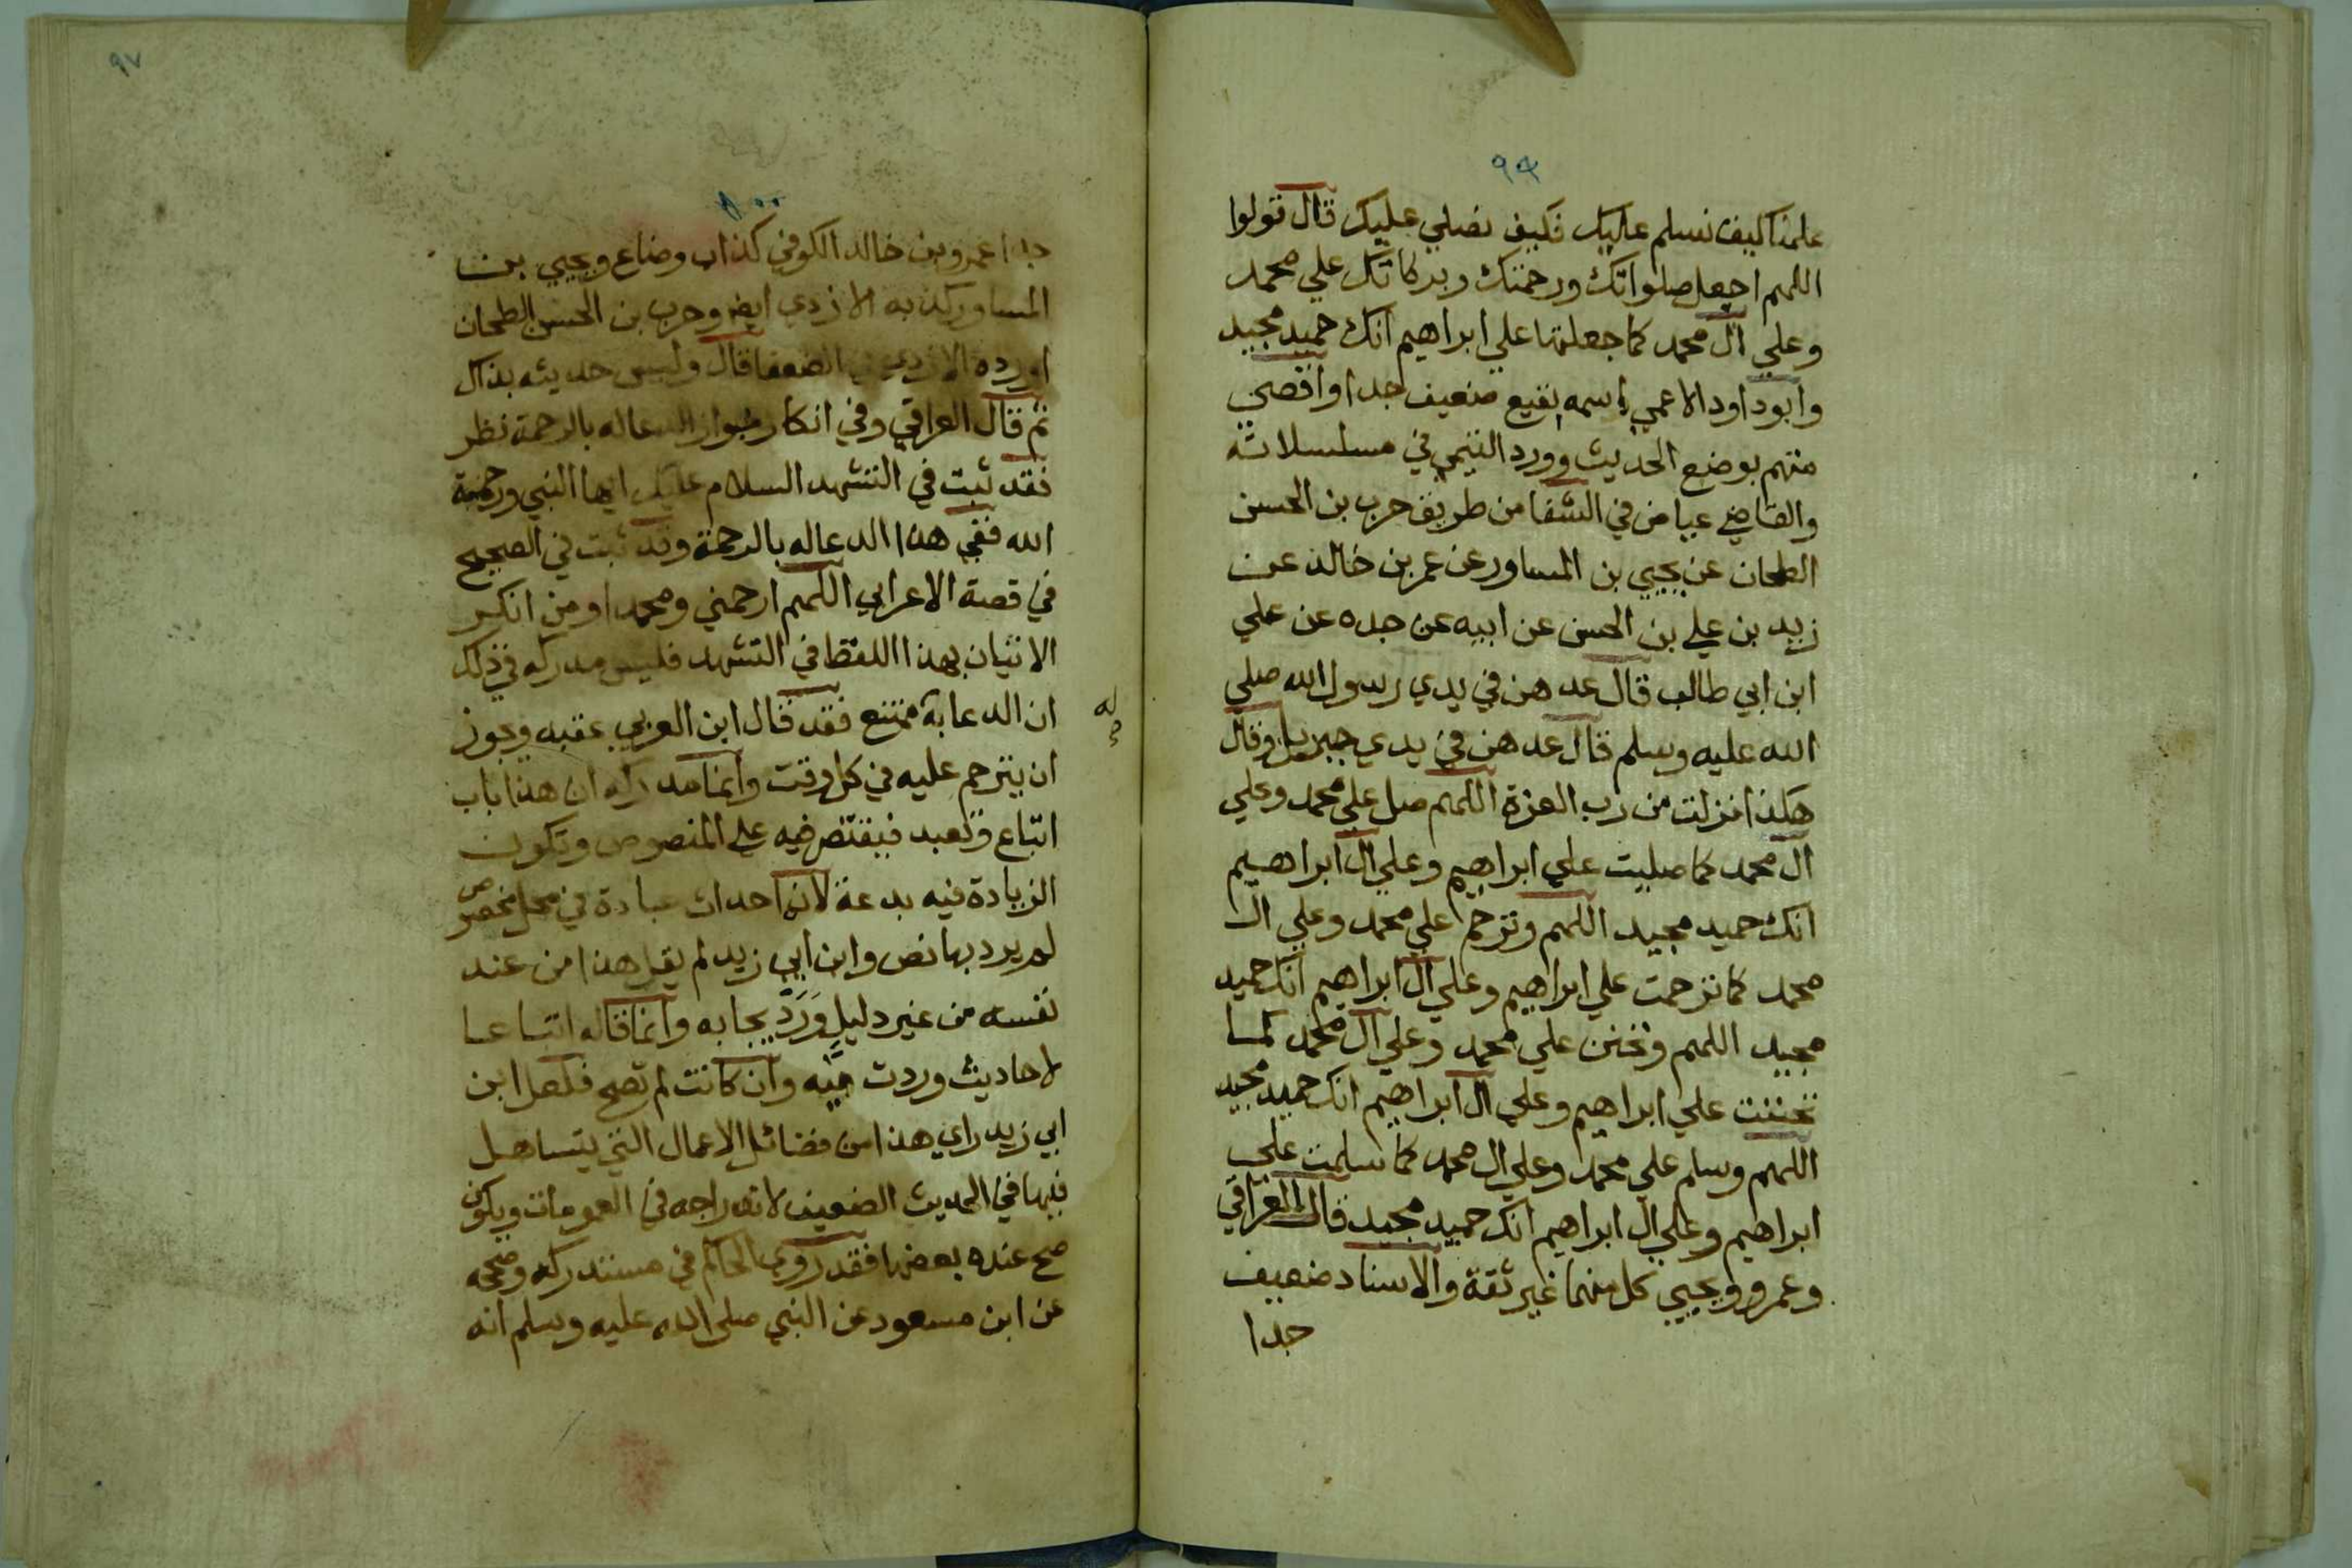 ٩٩
علمنا كيف نسلم عليك فكيف نصلي عليك قال قولوا
اللهم اجعل صلواتك ورحمتك وبركاتك علي محمد
وعلي ال محمد كما جعلتها علي ابراهيم انك حميد مجيد
وابوداود الاعمي اسمه نفيع ضعيف جدا واقصي
متهم بوضع الحديث وورد التيمي في مسلسلاته
والقاضي عياض في الشفا من طريق حرب بن الحسن
الطحان عن يحيي بن المساور عن عمر بن خالد عن
زيد بن علي بن الحسن عن ابيه عن جده عن علي
ابن ابي طالب قال عدهن في يدي رسول الله صلي
الله عليه وسلم قال عدهن في يدي جبريل وقال
هكذا نزلت من رب العزة اللهم صل علي محمد وعلي
ال محمد كما صليت علي ابراهيم وعلي ال ابراهيم
انك حميد مجيد اللهم وترحم علي محمد وعلي ال
محمد كما ترحمت علي ابراهيم وعلي ال ابراهيم انك حميد
مجيد اللهم وتحنن علي محمد وعلي ال محمد كما
تحننت علي ابراهيم وعلي ال ابراهيم انك حميد مجيد
اللهم وسلم علي محمد وعلي ال محمد كما سلمت علي
ابراهيم وعلي ال ابراهيم انك حميد مجيد قال العراقي
وعمرو ويحيي كل منهما غير ثقة والاسناد ضعيف
جدا
٩٧
١٠٠
جدا عمرو بن خالد الكوفي كذاب وضاع ويحيي بن
المساور كذبه الازدي ايض وحرب بن الحسن الطحان
اورده الازدي في الضعفا قال وليس حديثه بذاك
ثم قال العراقي وفي انكار جواز الدعا له بالرحمة نظر
فقد ثبت في التشهد السلام عليك ايها النبي ورحمة
الله ففي هذا الدعا له بالرحمة وقد ثبت في الصحيح
في قصة الاعرابي اللهم ارحمني ومحمدا ومن انكر
الاتيان بهذا اللفظ في التشهد فليس مدركه في ذلك
ان الدعا به ممتنع فقد قال ابن العربي عقبه ويجوز
ان يترحم عليه في كل وقت وانما مدركه ان هذا باب
اتباع وتعبد فيقتصر فيه علي المنصوص وتكون
الزيادة فيه بدعة لانها احداث عبادة في محل مخصوص
لم يرد بها نص وابن ابي زيد لم يقل هذا من عند
نفسه من غير دليل وَرَدَ بجابه وانما قاله اتباعا
لاحاديث وردت فيه وان كانت لم تصح فلعل ابن
ابي زيد راي هذا من فضائل الاعمال التي يتساهل
فيها في الحديث الضعيف لاندراجه في العمومات ويكون
صح عنده بعضها فقد روي الحاكم في مستدركه وصححه
عن ابن مسعود عن النبي صلي الله عليه وسلم انه